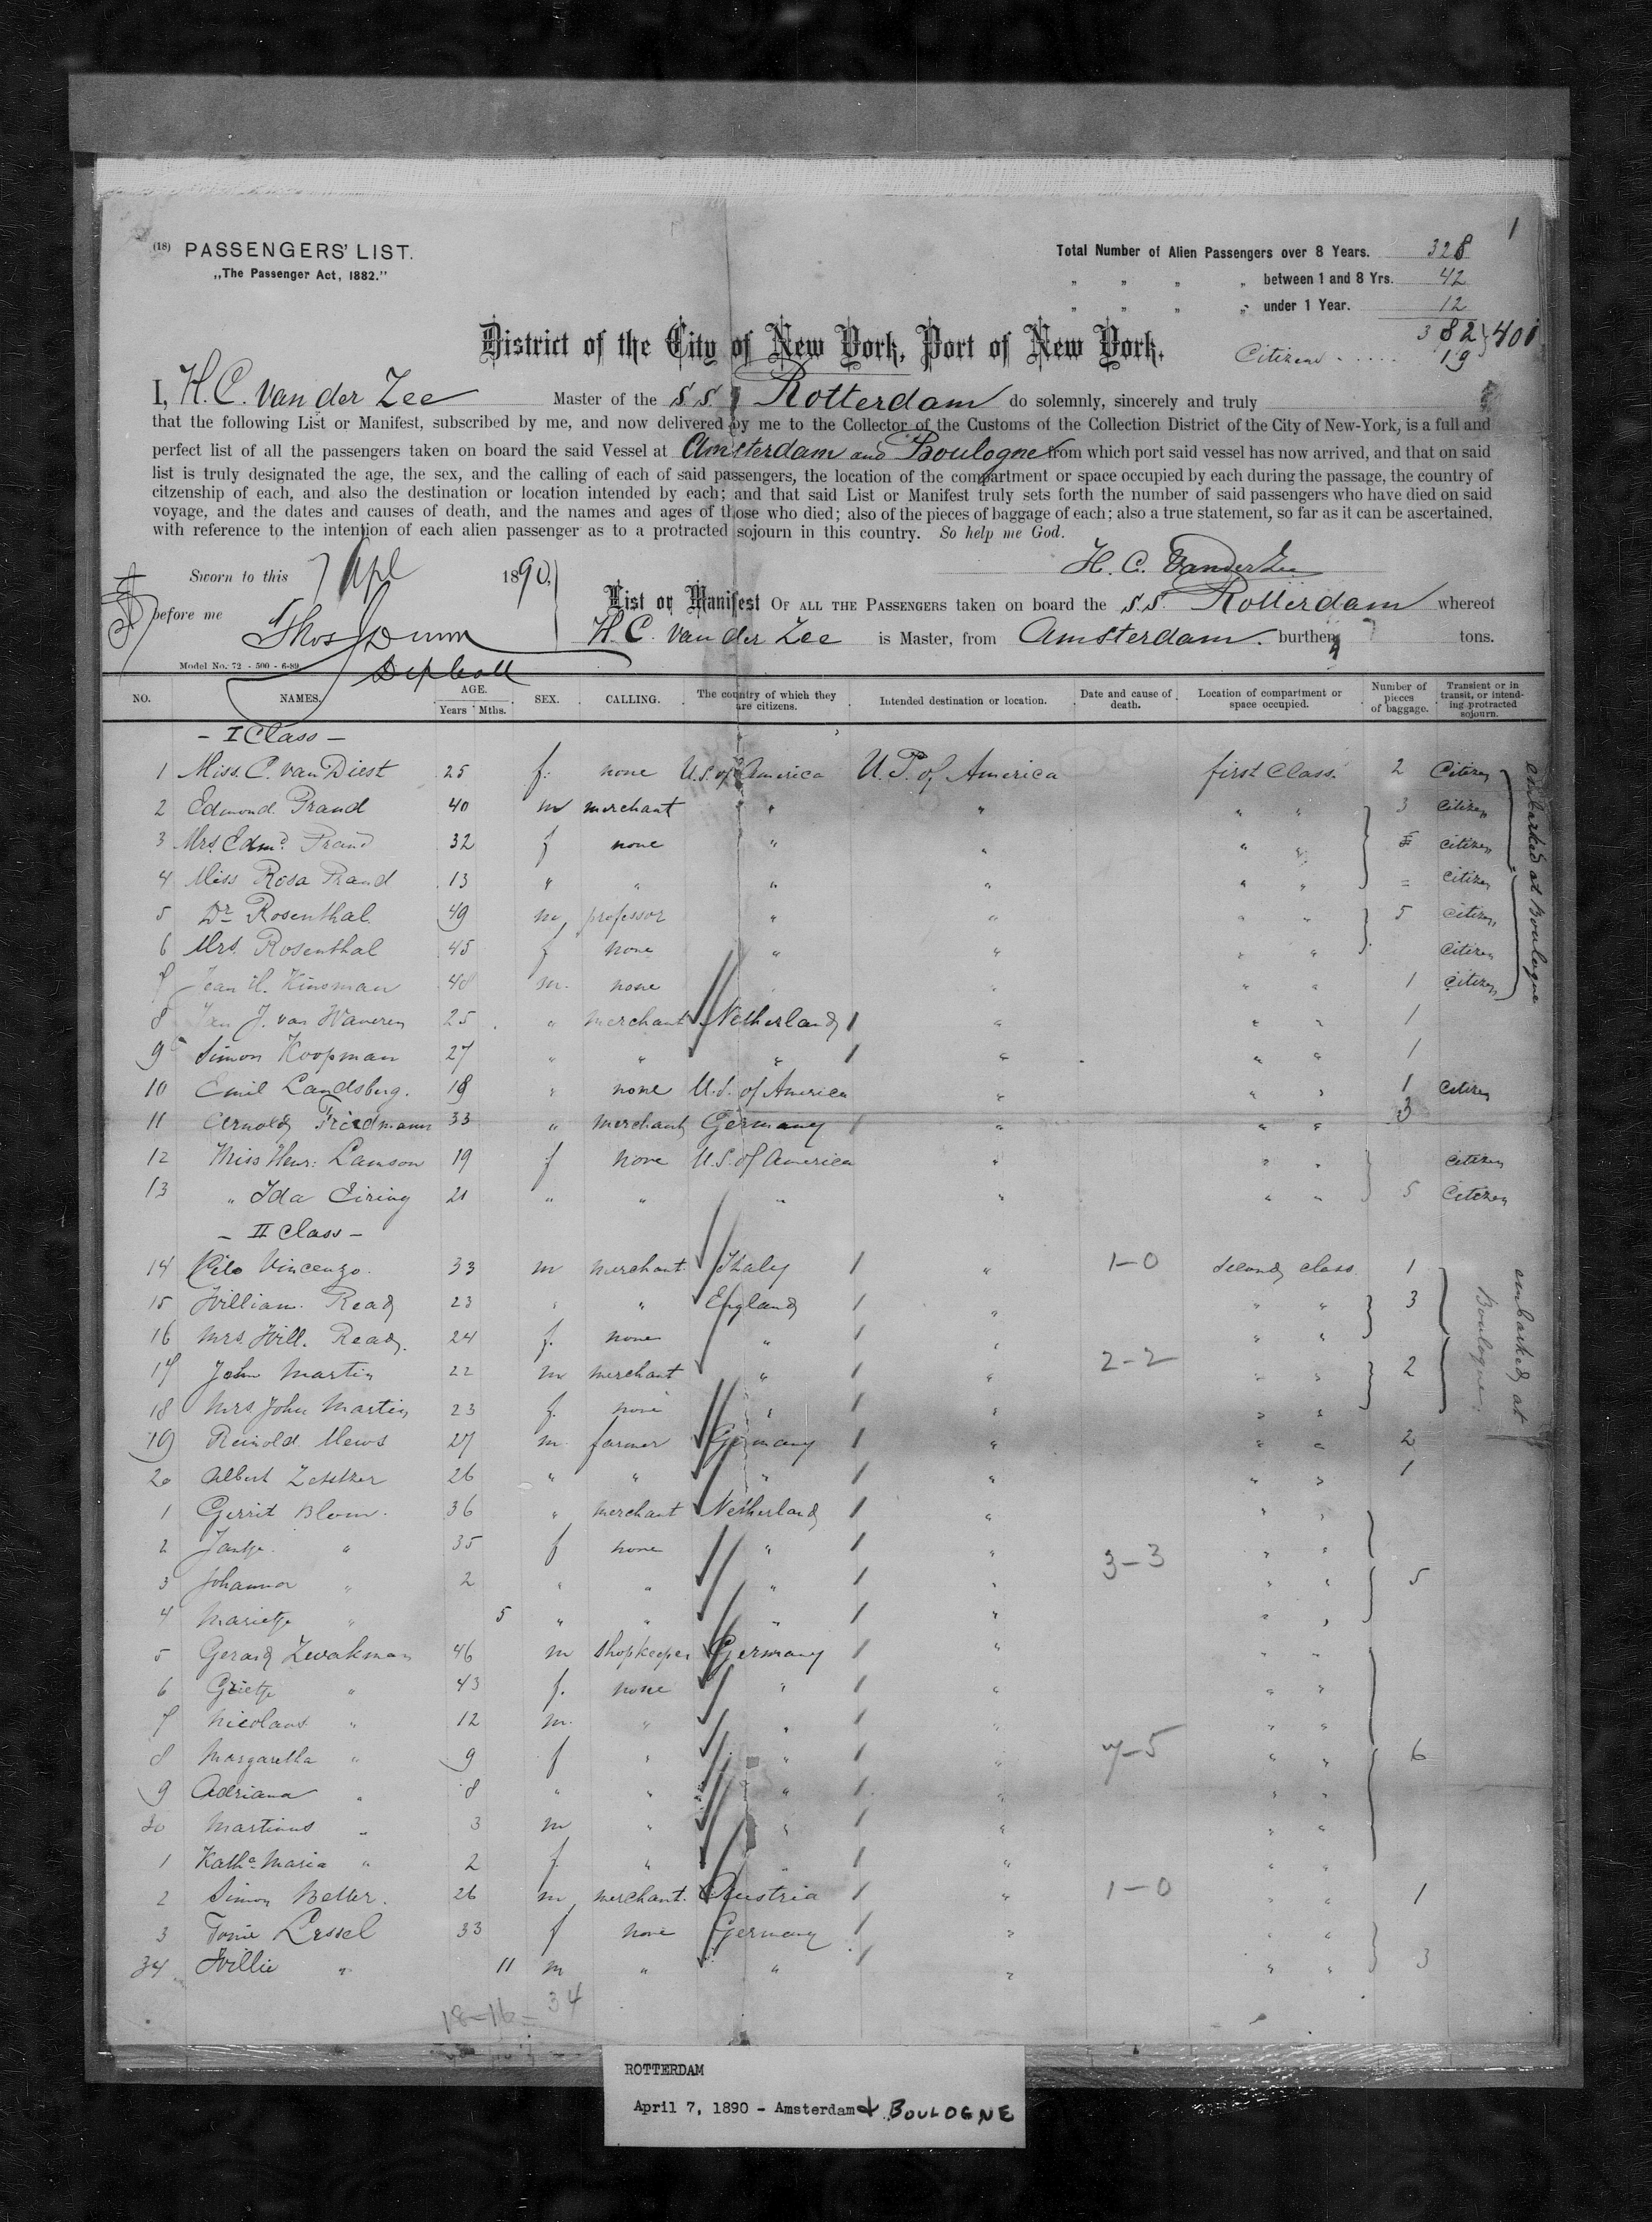 1
(18) PASSENGERS' LIST.
„The Passenger Act, 1882."
Total Number of Alien Passengers over 8 Years. 328
„ „ „ „ between 1 and 8 Yrs. 42
„ „ „ „ under 1 Year. 12
382 } 401
District of the City of New York, Port of New York.
Citizens ..... 19
I, H. C. van der Zee Master of the S.S. Rotterdam do solemnly, sincerely and truly
that the following List or Manifest, subscribed by me, and now delivered by me to the Collector of the Customs of the Collection District of the City of New-York, is a full and
perfect list of all the passengers taken on board the said Vessel at Amsterdam and Boulogne from which port said vessel has now arrived, and that on said
list is truly designated the age, the sex, and the calling of each of said passengers, the location of the compartment or space occupied by each during the passage, the country of
citzenship of each, and also the destination or location intended by each; and that said List or Manifest truly sets forth the number of said passengers who have died on said
voyage, and the dates and causes of death, and the names and ages of those who died; also of the pieces of baggage of each; also a true statement, so far as it can be ascertained,
with reference to the intention of each alien passenger as to a protracted sojourn in this country. So help me God.
H. C. VanderZee
Sworn to this 7 Apl 1890,
before me Thos Dunn
List or Manifest OF ALL THE PASSENGERS taken on board the S.S. Rotterdam whereof
H. C. van der Zee is Master, from Amsterdam. burthen tons.
Model No. 72 - 500 - 6-89
NO. NAMES. AGE. Years Mths. SEX. CALLING. The country of which they are citizens. Intended destination or location. Date and cause of death. Location of compartment or space occupied. Number of pieces of baggage. Transient or in transit, or intending protracted sojourn.
- I Class -
1 Miss. C. van Diest 25 f. none U.S. of America U.S. of America first Class. 2 Citizen
2 Edmond Prand 40 m merchant " " " " 3 citizen
3 Mrs. Edmd. Prand 32 f none " " " " citizen
4 Miss Rosa Prand 13 " " " " " " = citizen
5 Dr. Rosenthal 49 m professor " " " " 5 citizen
6 Mrs. Rosenthal 45 f none " " " " citizen
7 Jean H. Kinsman 48 m. none " " " 1 citizen
embarked at Boulogne
8 Jan J. van Waveren 25 " merchant Netherland 1 " " " 1
9 Simon Koopman 27 " " " 1 " " " 1
10 Emil Landsberg. 18 " none U.S. of America " " " 1 citizen
11 Arnold Friedmann 33 " merchant Germany 1 " " " 3
12 Miss Henr: Lamson 19 f none U.S. of America " " " citizen
13 " Ida Eiring 21 " " " " " " 5 Citizen
- II Class -
14 Vincenzo. 33 m merchant. Italy 1 " 1-0 second class 1
15 William Read 23 " " England 1 " " " 3
16 Mrs. Will. Read. 24 f. none " 1 " " "
17 John Martin 22 m merchant " 1 " 2-2 " " 2
18 Mrs John Martin 23 f. none " 1 " " "
embarked at Boulogne
19 Reinold Mews 27 m. farmer Germany 1 " " " 2
20 Albert 26 " " " 1 " " " 1
1 Gerrit Blom. 36 " merchant Netherland 1 " " "
2 Jantje " 35 f none " 1 " 3-3 " "
3 Johanna " 2 " " " 1 " " " 5
4 Marietje " 5 " " " 1 " " "
5 Gerard Zwakman 46 m shopkeeper Germany 1 " " "
6 Grietje " 43 f. none " 1 " " "
7 Nicolaus " 12 m. " " 1 " " "
8 Margaretha " 9 f " " 1 " 7-5 " " 6
9 Adriana " 8 " " " 1 " " "
30 Martinus " 3 m " " 1 " " "
1 Katha. Maria " 2 f " " 1 " " "
2 Simon Beller. 26 m merchant. Austria 1 " 1-0 " " 1
3 Tonie Lessel 33 f none Germany 1 " " "
34 Willie " 11 m " " 1 " " " 3
18-16=34
ROTTERDAM
April 7, 1890 - Amsterdam & BOULOGNE